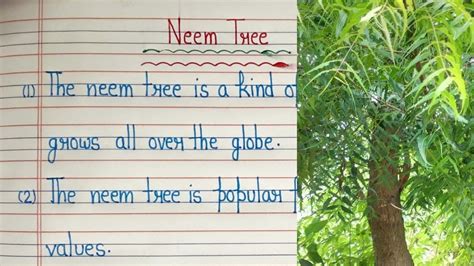 Neem Tree
(1) The neem tree is a kind of
grows all over the globe.
(2) The neem tree is popular
values.